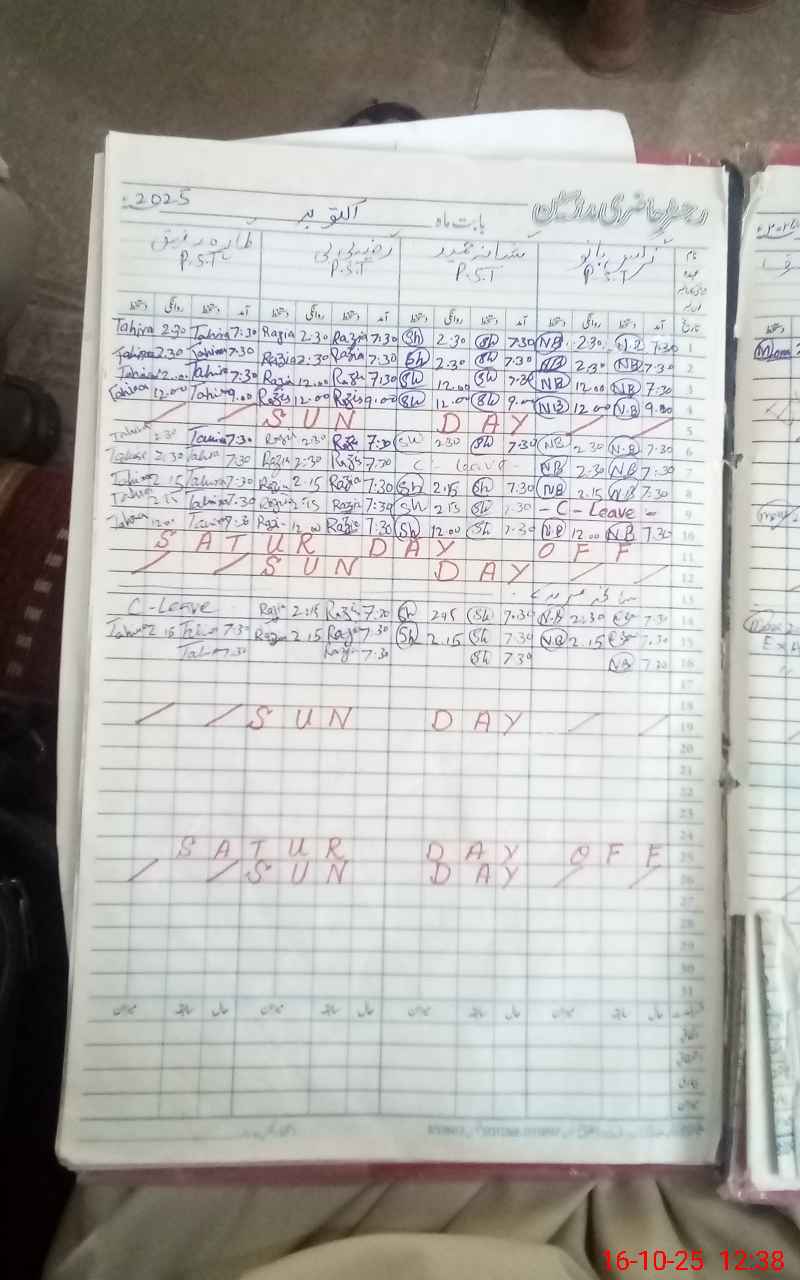 رجسٹر حاضری مدرسین بابت ماہ اکتوبر 2025
نرگس بانو شبانہ حمید رضیہ بی بی طاہرہ رفیق
P.S.T P.S.T P.S.T P.S.T
تاریخ آمد دستخط روانگی دستخط آمد دستخط روانگی دستخط آمد دستخط روانگی دستخط آمد دستخط روانگی دستخط
Tahira 2:30 Tahira 7:30 Razia 2:30 Razia 7:30 Sh 2:30 Sh 7:30 NB 2:30 N.B 7:30 1
Tahira 2:30 Tahira 7:30 Razia 2:30 Razia 7:30 Sh 2:30 Sh 7:30 NB 2:30 NB 7:30 2
Tahira 12:00 Tahira 7:30 Razia 12:00 Razia 7:30 Sh 12:00 Sh 7:30 NB 12:00 NB 7:30 3
Tahira 12:00 Tahira 9:00 Razia 12:00 Razia 9:00 Sh 12:00 Sh 9:00 N.B 12:00 N.B 9:00 4
SUN DAY 5
Tahira 2:30 Tahira 7:30 Razia 2:30 Razia 7:30 Sh 2:30 Sh 7:30 NB 2:30 N.B 7:30 6
Tahira 2:30 Tahira 7:30 Razia 2:30 Razia 7:30 C - Leave - NB 2:30 NB 7:30 7
Tahira 2:15 Tahira 7:30 Razia 2:15 Razia 7:30 Sh 2:15 Sh 7:30 NB 2:15 NB 7:30 8
Tahira 2:15 Tahira 7:30 Razia 2:15 Razia 7:30 Sh 2:15 Sh 7:30 - C - Leave - 9
Tahira 12:00 Tahira 7:30 Razia 12:00 Razia 7:30 Sh 12:00 Sh 7:30 N.B 12:00 NB 7:30 10
SATUR DAY OFF 11
SUN DAY 12
13
C-Leave Razia 2:15 Razia 7:30 Sh 2:15 Sh 7:30 N.B 2:30 7:30 14
Tahira 2:15 Tahira 7:30 Razia 2:15 Razia 7:30 Sh 2:15 Sh 7:30 NB 2:15 7:30 15
Tahira 7:30 Razia 7:30 Sh 7:30 NB 7:30 16
17
18
SUN DAY 19
20
21
22
23
24
SATUR DAY OFF 25
SUN DAY 26
27
28
29
30
31
16-10-25 12:38